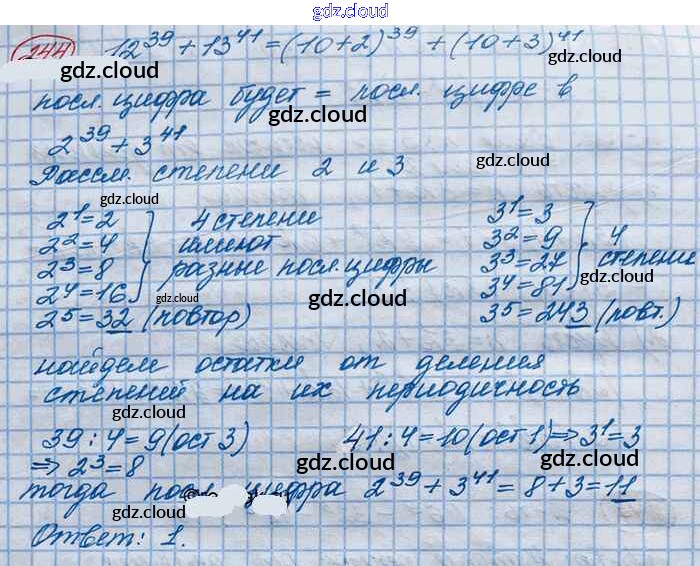 gdz.cloud
244 12^39 + 13^41 = (10+2)^39 + (10+3)^41
gdz.cloud gdz.cloud
посл. цифра будет = посл. цифре в
gdz.cloud
2^39 + 3^41
gdz.cloud
Рассм. степени 2 и 3
gdz.cloud
2^1=2
2^2=4
2^3=8
2^4=16
4 степени
имеют
разные посл. цифры
3^1=3
3^2=9
3^3=27
3^4=81
4
степени
gdz.cloud gdz.cloud gdz.cloud
gdz.cloud gdz.cloud
2^5=32 (повтор) 3^5=243 (повт.)
найдем остатки от деления
степеней на их периодичность
gdz.cloud gdz.cloud
39:4=9(ост 3) 41:4=10(ост 1)⇒3^1=3
⇒ 2^3=8
gdz.cloud
тогда посл. цифра 2^39 + 3^41 = 8+3=11
gdz.cloud gdz.cloud
Ответ: 1.